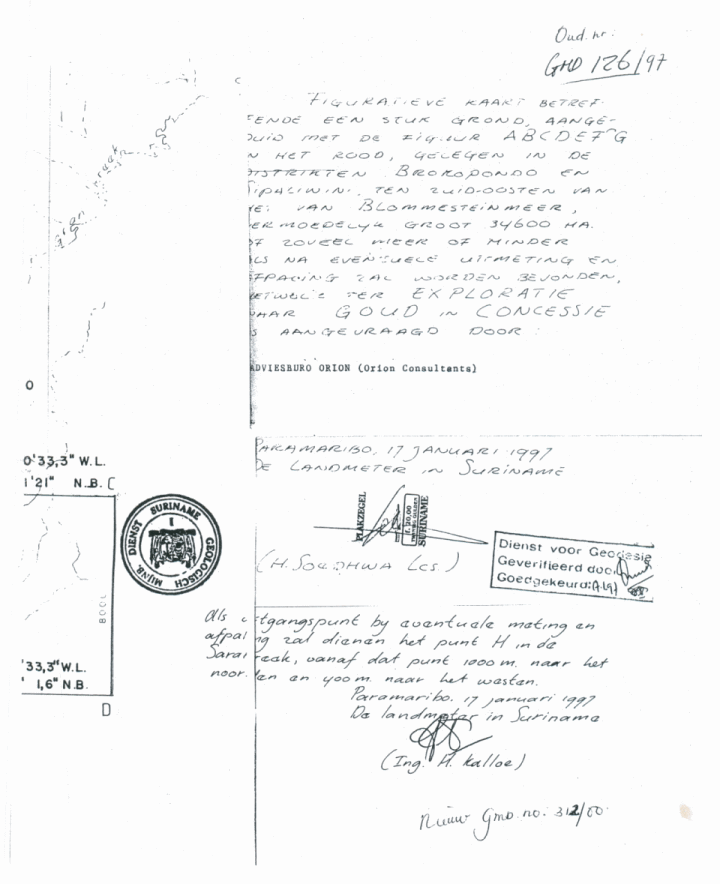 Oud. nr.
GMD 126/97
C
FIGURATIEVE KAART BETREF-
ENDE EEN STUK GROND, AANGE-
DUID MET DE FIGUUR ABCDEFG
N HET ROOD, GELEGEN IN DE
DISTRIKTEN BROKOPONDO EN
SIPALIWINI, TEN ZUID-OOSTEN VAN
VAN BLOMMESTEINMEER,
ERMOEDELYK GROOT 34600 HA.
OF ZOVEEL MEER OF MINDER
ALS NA EVENTUELE UITMETING EN
AFPALING ZAL WORDEN BEVONDEN,
TER EXPLORATIE
NAAR GOUD IN CONCESSIE
S AANGEVRAAGD DOOR:
gran kreek
O
ADVIESBURO ORION (Orion Consultants)
PARAMARIBO, 17 JANUARI 1997
DE LANDMETER IN SURINAME
0'33,3" W.L.
1'21" N.B. C
MIJNB. DIENST SURINAME GEOLOGISCH
PLAKZEGEL
SURINAME
Dienst voor Geodesie
Geverifieerd door
Goedgekeurd:
8001
'33,3" W.L.
' 1,6" N.B.
D
Als uitgangspunt by eventuale meting en
afpaling zal dienen het punt H in de
Sarakreek, vanaf dat punt 1000 m. naar het
noorden en 400 m. naar het westen.
Paramaribo. 17 januari 1997
De landmeter in Suriname
(Ing. H. Kalloe)
Nieuw Gmd. no: 312/00